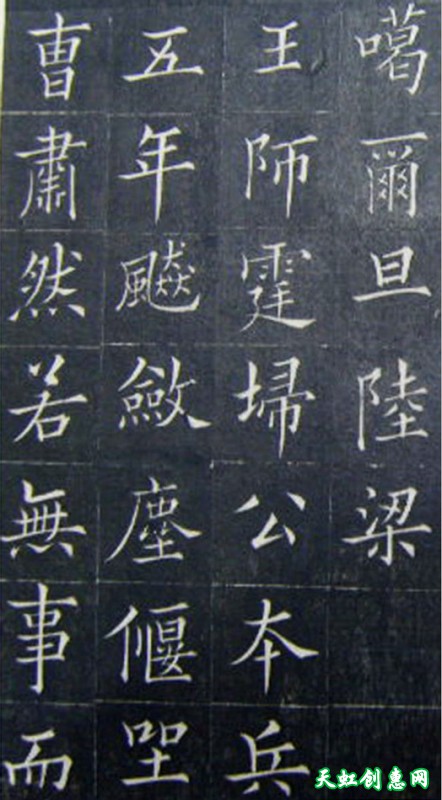 噶爾旦陸梁
王師霆埽公本兵
五年飈斂塵偃坐
曹肅然若無事而
天虹创意网